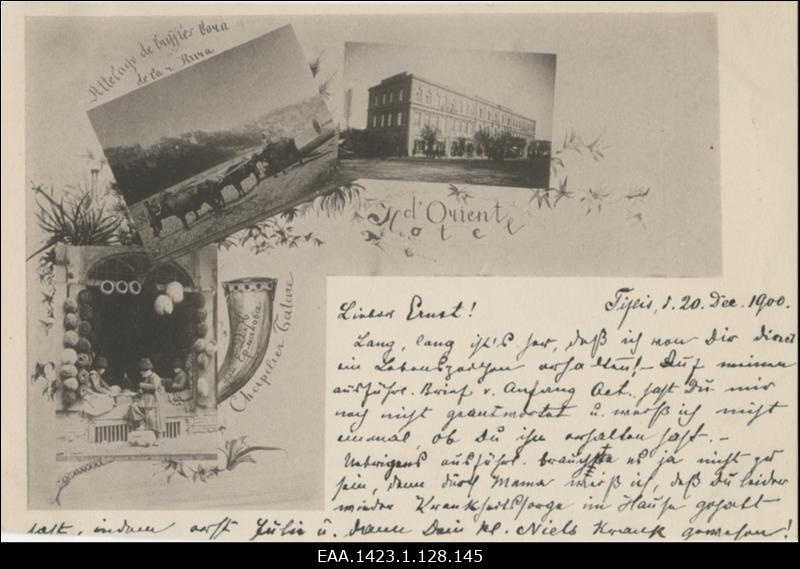 Attelage de buffles
de la r. Kura
Hotel d'Orient
Chapelier Tatare
Tiflis, d. 20. Dec. 1900.
Lieber Ernst!
Lang, lang ist's her, daß ich von Dir direct
ein Lebenszeichen erhalten! – Auf meinen
ausführl. Brief v. Anfang Oct. hast Du mir
noch nicht geantwortet u. weiß ich nicht
einmal, ob Du ihn erhalten hast. –
Uebrigens ausführl. brauchte es ja nicht zu
sein, denn durch Mama weiß ich, daß Du leider
wieder Krankheitssorge im Hause gehabt
hast, indem erst Julie u. dann Dein kl. Niels krank gewesen!
EAA.1423.1.128.145